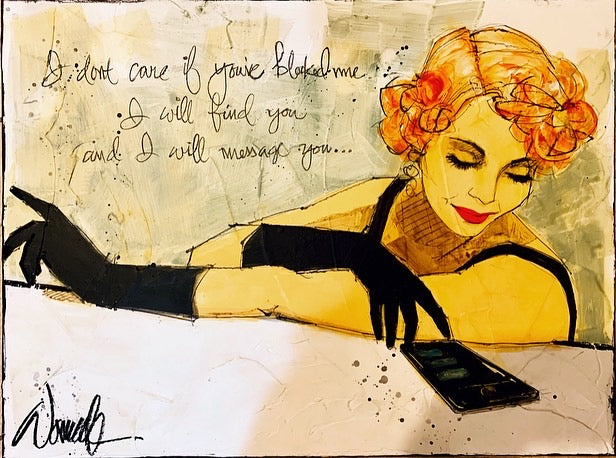 I dont care if you've Blocked me
I will find you
and I will message you...